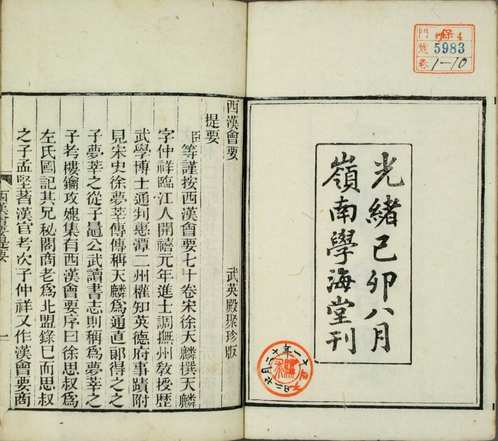 門
號 5983
卷 1-10
光緒己卯八月
嶺南學海堂刊
西漢會要 武英殿聚珍版
提要
臣等謹按西漢會要七十卷宋徐天麟撰天麟
字仲祥臨江人開禧元年進士調撫州敎授歷
武學博士通判惠潭二州權知英德府事蹟附
見宋史徐夢莘傳傳稱天麟爲通直郞得之之
子夢莘之從子晁公武讀書志則稱爲夢莘之
子考樓鑰攻媿集有西漢會要序曰徐思叔爲
左氏國記其兄秘閣商老爲北盟錄已而思叔
之子孟堅著漢官考次子仲祥又作漢會要商
西漢會要提要 一